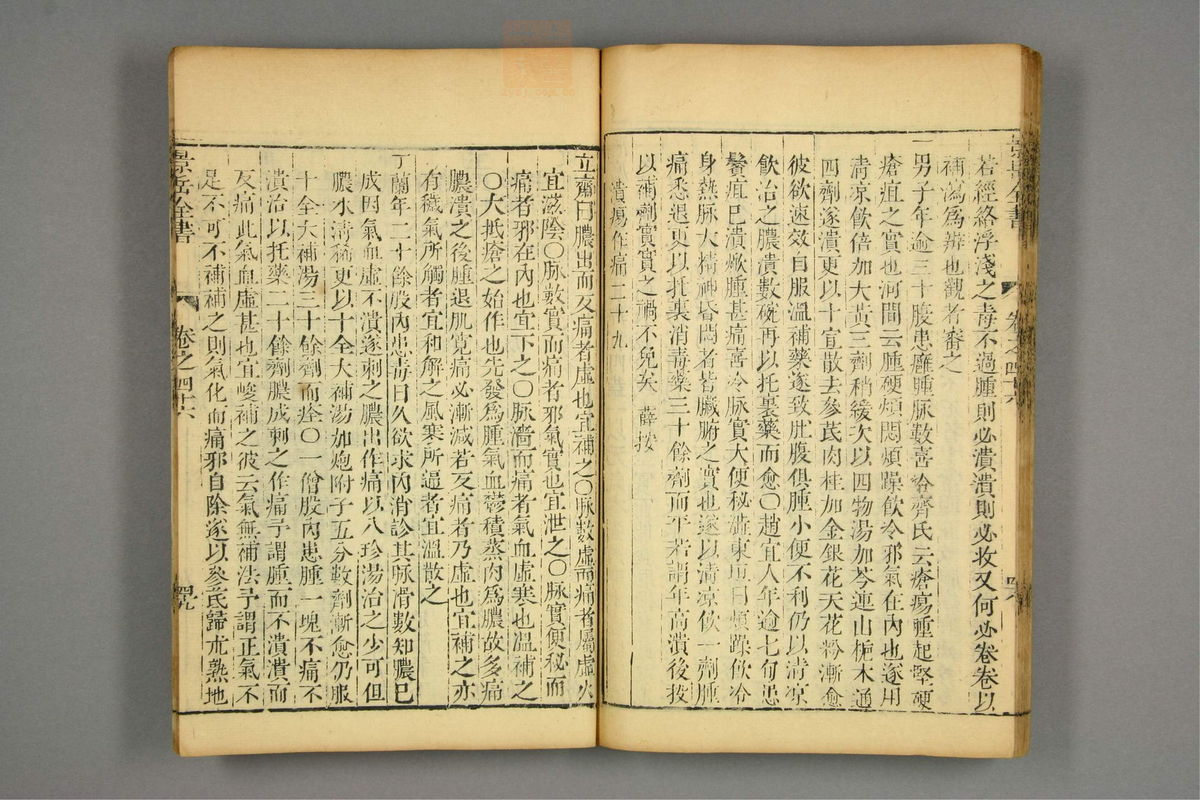 若經絡浮淺之毒不過腫則必潰潰則必收又何必卷卷以
補瀉為辨也觀者審之
一男子年逾三十腹患癰腫脉數喜冷齊氏云瘡瘍腫起堅硬
瘡疽之實也河間云腫硬煩悶煩躁飲冷邪氣在內也遂用
清凉飲倍加大黃三劑稍緩次以四物湯加芩連山梔木通
四劑遂潰更以十宣散去參芪肉桂加金銀花天花粉漸愈
彼欲速效自服溫補藥遂致肚腹俱腫小便不利仍以清凉
飲治之膿潰數碗再以托裏藥而愈〇趙宜人年逾七旬患
鬢疽巳潰焮腫甚痛喜冷脉實大便秘澁東垣曰煩躁飲冷
身熱脉大精神昏悶者皆臟腑之實也遂以清凉飲一劑腫
痛悉退更以托裏消毒藥三十餘劑而平若謂年高潰後投
以補劑實實之禍不免矣 薛按
潰瘍作痛二十九
立齋曰膿出而反痛者虛也宜補之〇脉數虛而痛者屬虛火
宜滋陰〇脉數實而痛者邪氣實也宜泄之〇脉實便秘而
痛者邪在內也宜下之〇脉濇而痛者氣血虛寒也溫補之
〇大抵瘡之始作也先發為腫氣血鬱積蒸肉為膿故多痛
膿潰之後腫退肌寬痛必漸減若反痛者乃虛也宜補之亦
有穢氣所觸者宜和解之風寒所逼者宜溫散之
丁蘭年二十餘股內患毒日久欲求內消診其脉滑數知膿巳
成因氣血虛不潰遂刺之膿出作痛以八珍湯治之少可但
膿水清稀更以十全大補湯加炮附子五分數劑漸愈仍服
十全大補湯三十餘劑而痊〇一僧股內患腫一塊不痛不
潰治以托藥二十餘劑膿成刺之作痛予謂腫而不潰潰而
反痛此氣血虛甚也宜峻補之彼云氣無補法予謂正氣不
足不可不補補之則氣化而痛邪自除遂以參芪歸朮熟地
景岳全書 卷之四十六 四九